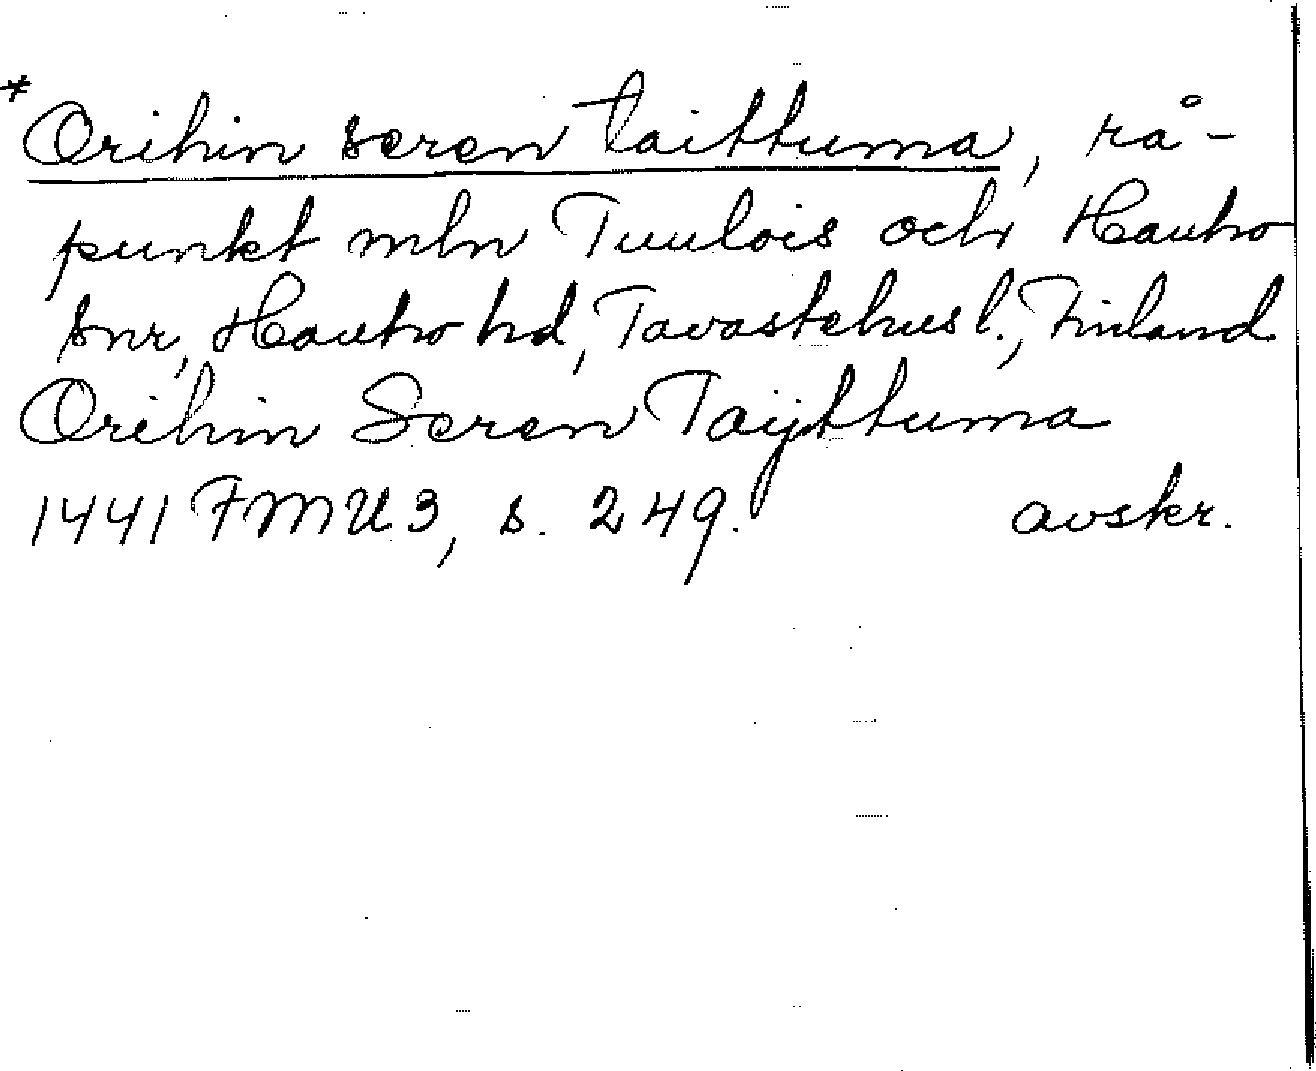 *Orihin seren taittuma, rå-
punkt mln Tuulois och Hauho
snr, Hauho hd, Tavastehus l., Finland
Orihin Seren Taijttuma
1441 FMU 3, s. 249. avskr.